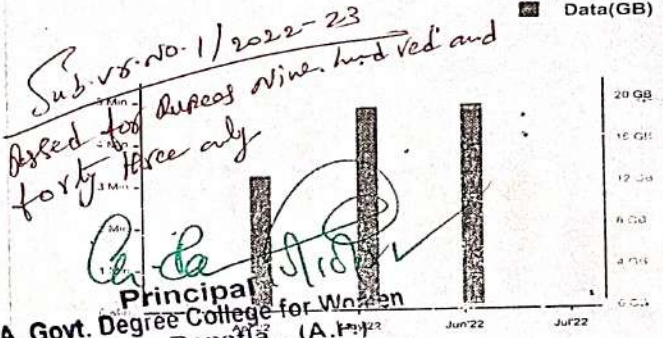 Data(GB)
Sub. vr. No. 1/2022-23
Passed for Rupees Nine hundred and
forty three only
5 Min
20 GB
16 GB
3 Min
12 GB
8 GB
4 GB
0 GB
Principal
A. Govt. Degree College for Women
(A.P.)
May'22
Jun'22
Jul'22